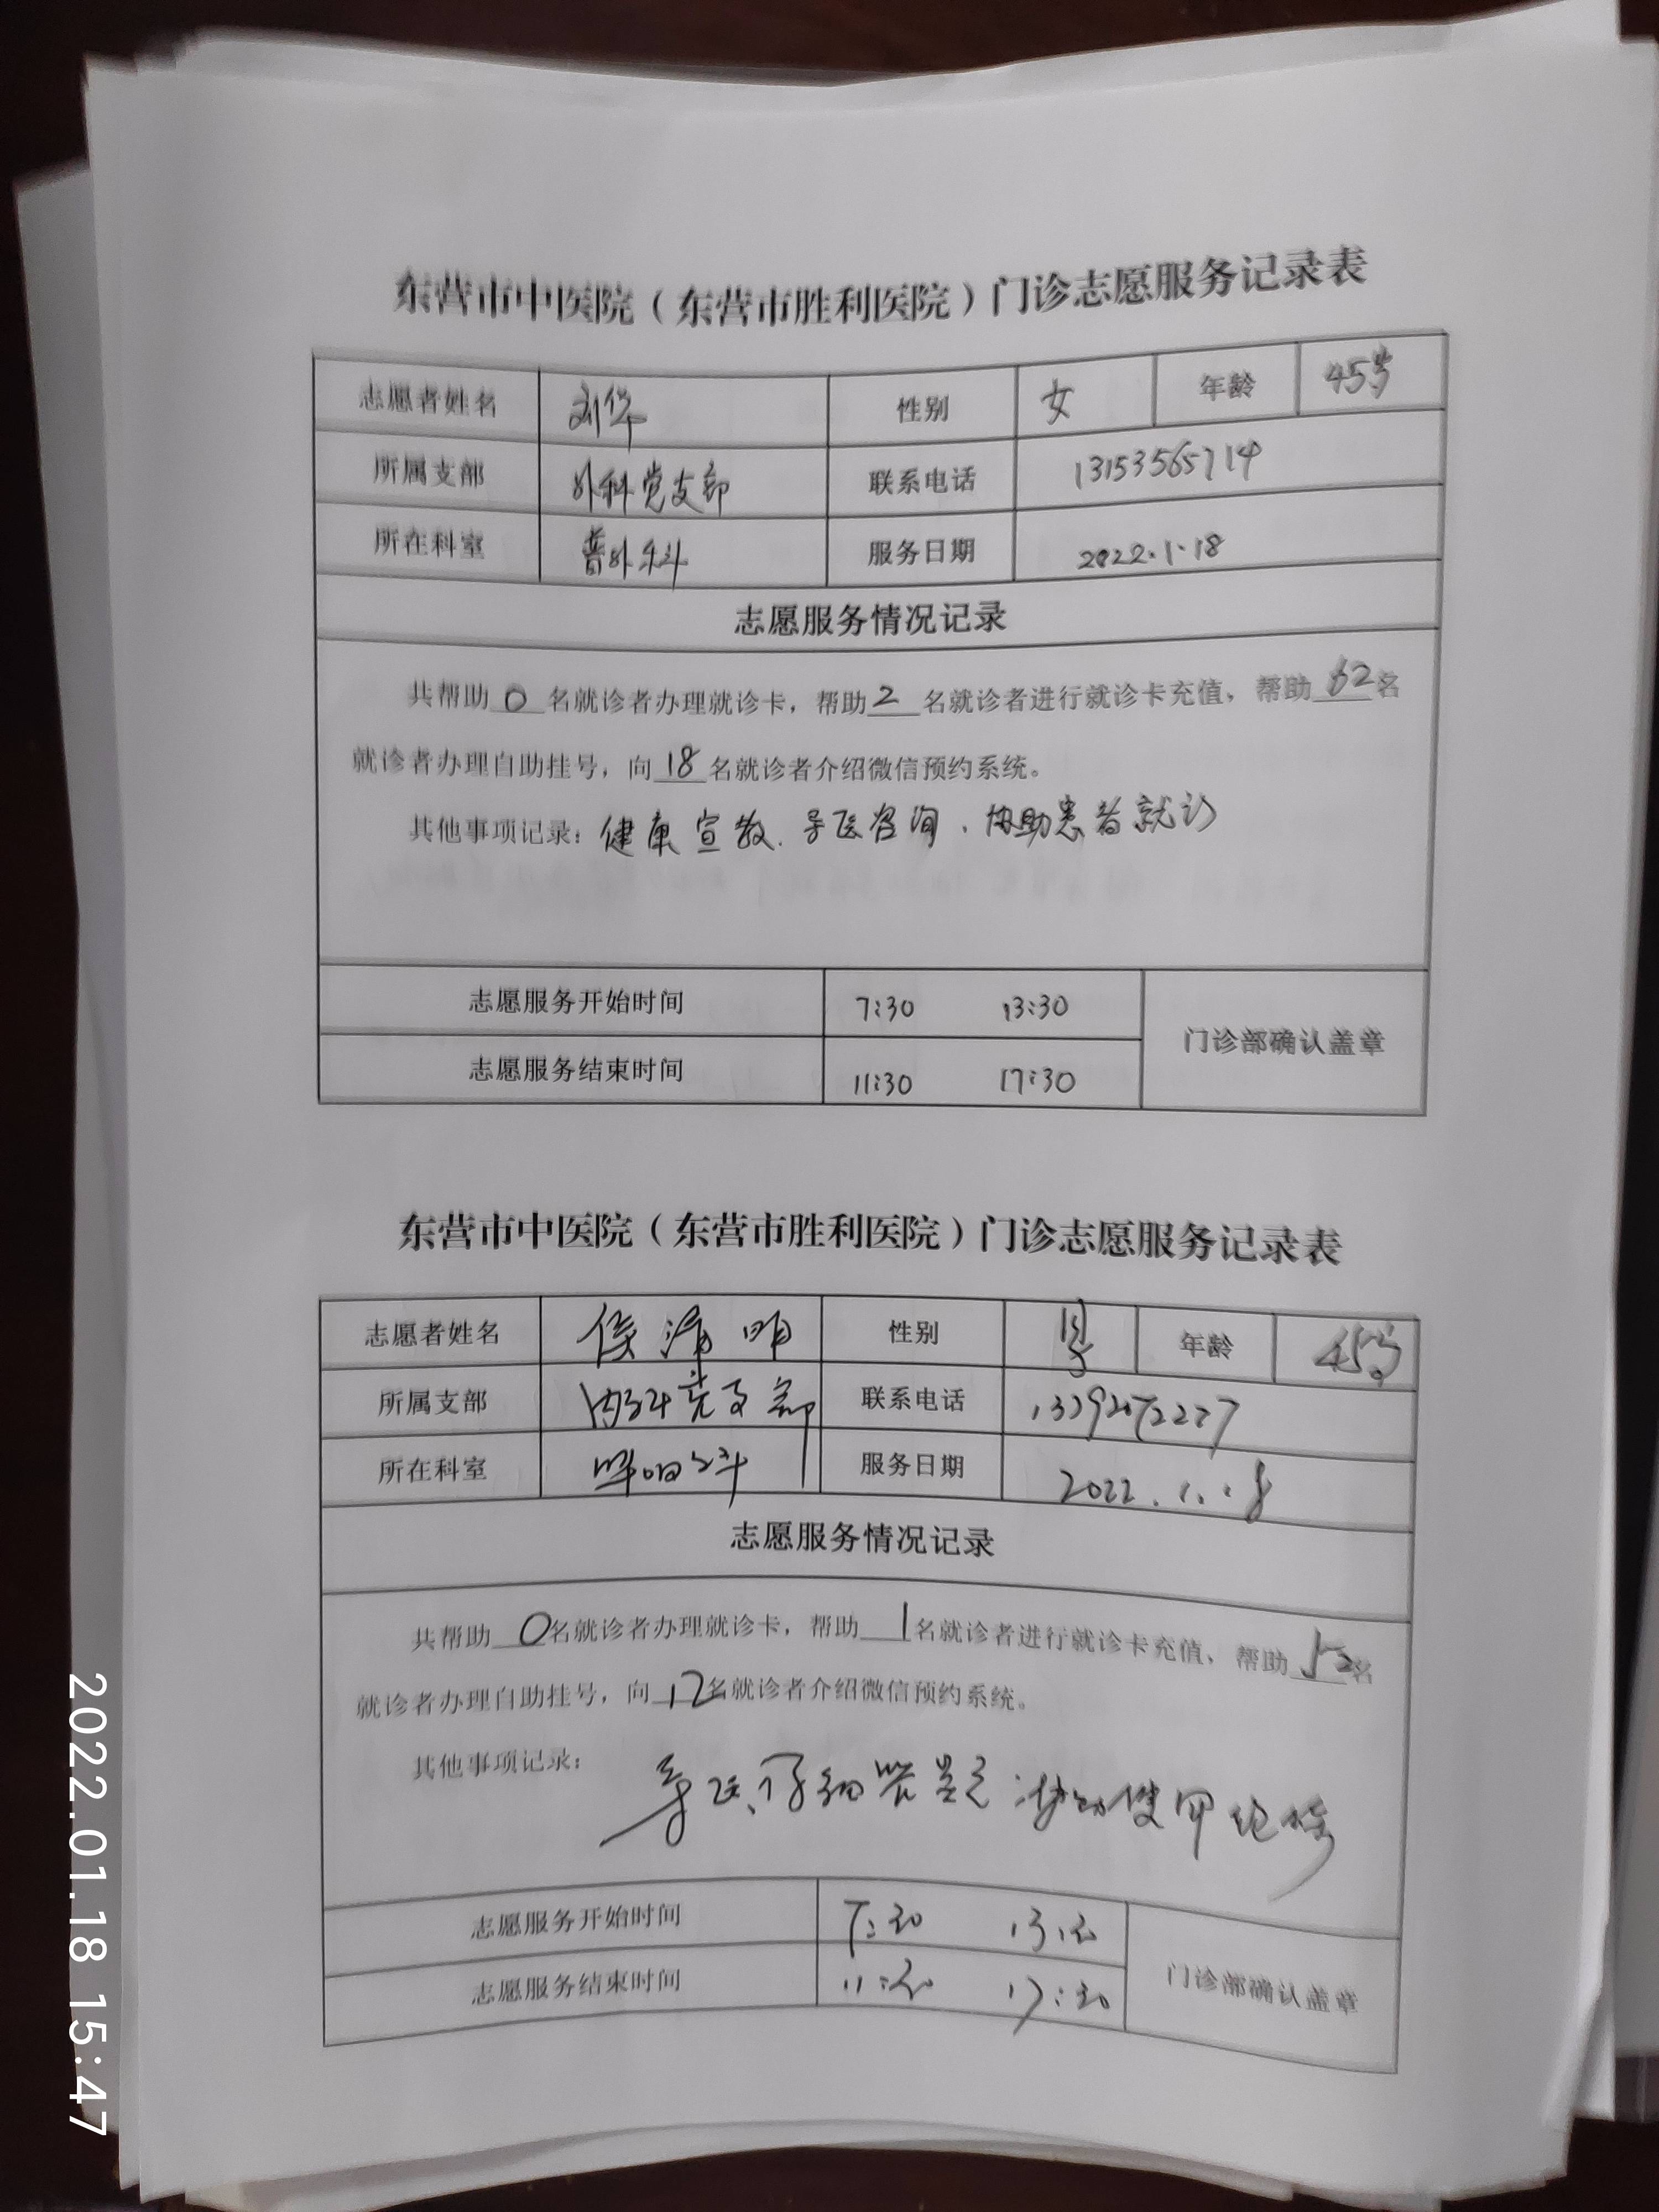 东营市中医院（东营市胜利医院）门诊志愿服务记录表
志愿者姓名 刘华 性别 女 年龄 45岁
所属支部 外科党支部 联系电话 13153565714
所在科室 普外科 服务日期 2022.1.18
志愿服务情况记录
共帮助 0 名就诊者办理就诊卡，帮助 2 名就诊者进行就诊卡充值，帮助 62 名
就诊者办理自助挂号，向 18 名就诊者介绍微信预约系统。
其他事项记录：健康宣教、导医咨询、协助患者就诊
志愿服务开始时间 7:30 13:30
门诊部确认盖章
志愿服务结束时间 11:30 17:30
东营市中医院（东营市胜利医院）门诊志愿服务记录表
志愿者姓名 侯 明 性别 男 年龄 45岁
所属支部 内科党支部 联系电话
所在科室 呼吸科 服务日期 2022.1.18
志愿服务情况记录
共帮助 0 名就诊者办理就诊卡，帮助 1 名就诊者进行就诊卡充值，帮助 名
就诊者办理自助挂号，向 12 名就诊者介绍微信预约系统。
其他事项记录：
导医
志愿服务开始时间 7:30 13:30
门诊部确认盖章
志愿服务结束时间 11:30 17:30
2022.01.18 15:47